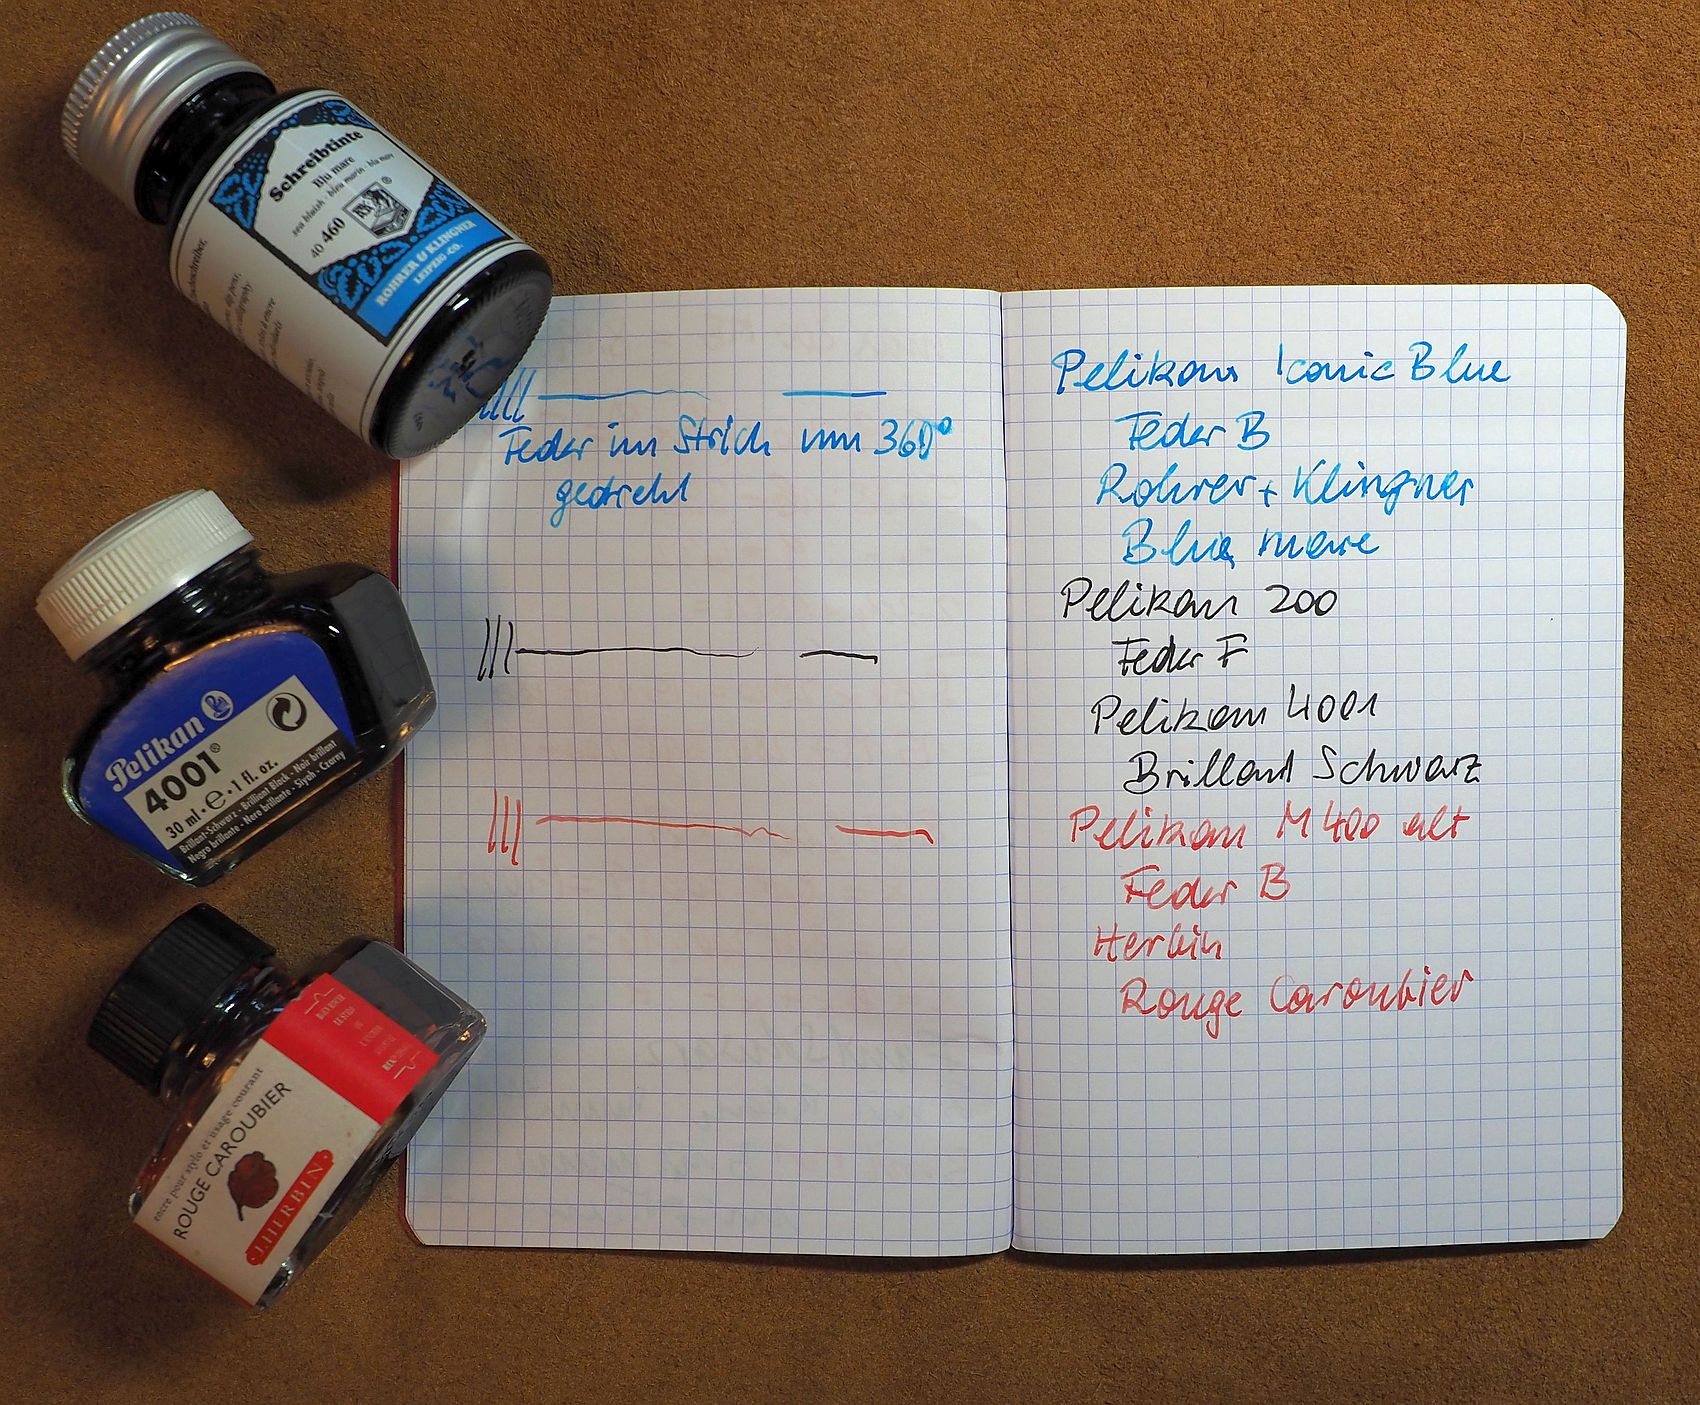 Schreibtinte
Blu mare
sea bluish · bleu marin · blu mare
40 460
RK
®
ROHRER & KLINGNER
LEIPZIG-CO.
Pelikan
4001®
30 ml · e · 1 fl. oz.
Brillant-Schwarz · Brilliant Black · Noir brillant
Negro brillante · Nero brillante · Siyah · Czarny
encre pour stylo et usage courant
ROUGE CAROUBIER
J. HERBIN
Feder im Strich um 360°
gedreht
Pelikan Iconic Blue
Feder B
Rohrer + Klingner
Blue mare
Pelikan 200
Feder F
Pelikan 4001
Brillant Schwarz
Pelikan M 400 alt
Feder B
Herbin
Rouge Caroubier